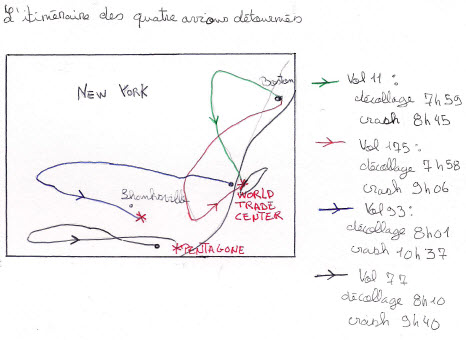 L'itinéraire des quatre avions détournés
Boston
NEW YORK
Shanksville
WORLD
TRADE
CENTER
PENTAGONE
Vol 11 :
décollage 7h59
crash 8h45
Vol 175 :
décollage 7h58
crash 9h06
Vol 93 :
décollage 8h01
crash 10h37
Vol 77
décollage 8h10
crash 9h40